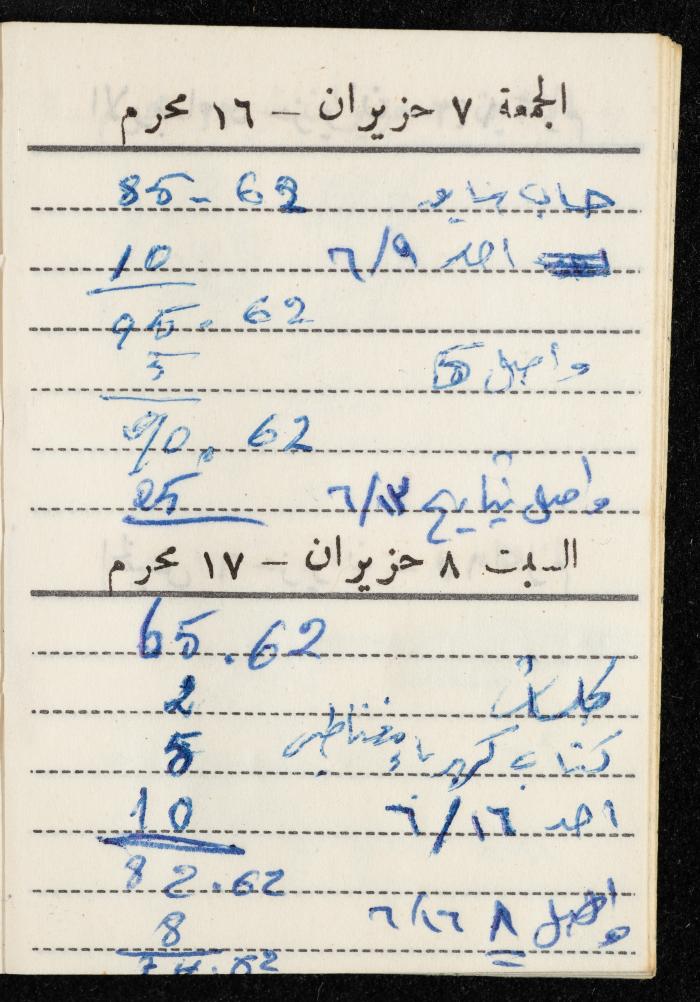 الجمعة ٧ حزيران – ١٦ محرم
حساب 85.62
احد ٦/٩ 10
95.62
واصل 5 5
90.62
واصل بتاريخ ٦/١٣ 25
السبت ٨ حزيران – ١٧ محرم
65.62
2
كتاب كهرباء مغناطيس 5
احد ٦/١٦ 10
82.62
واصل ٨ ٦/٢٦ 8
74.62